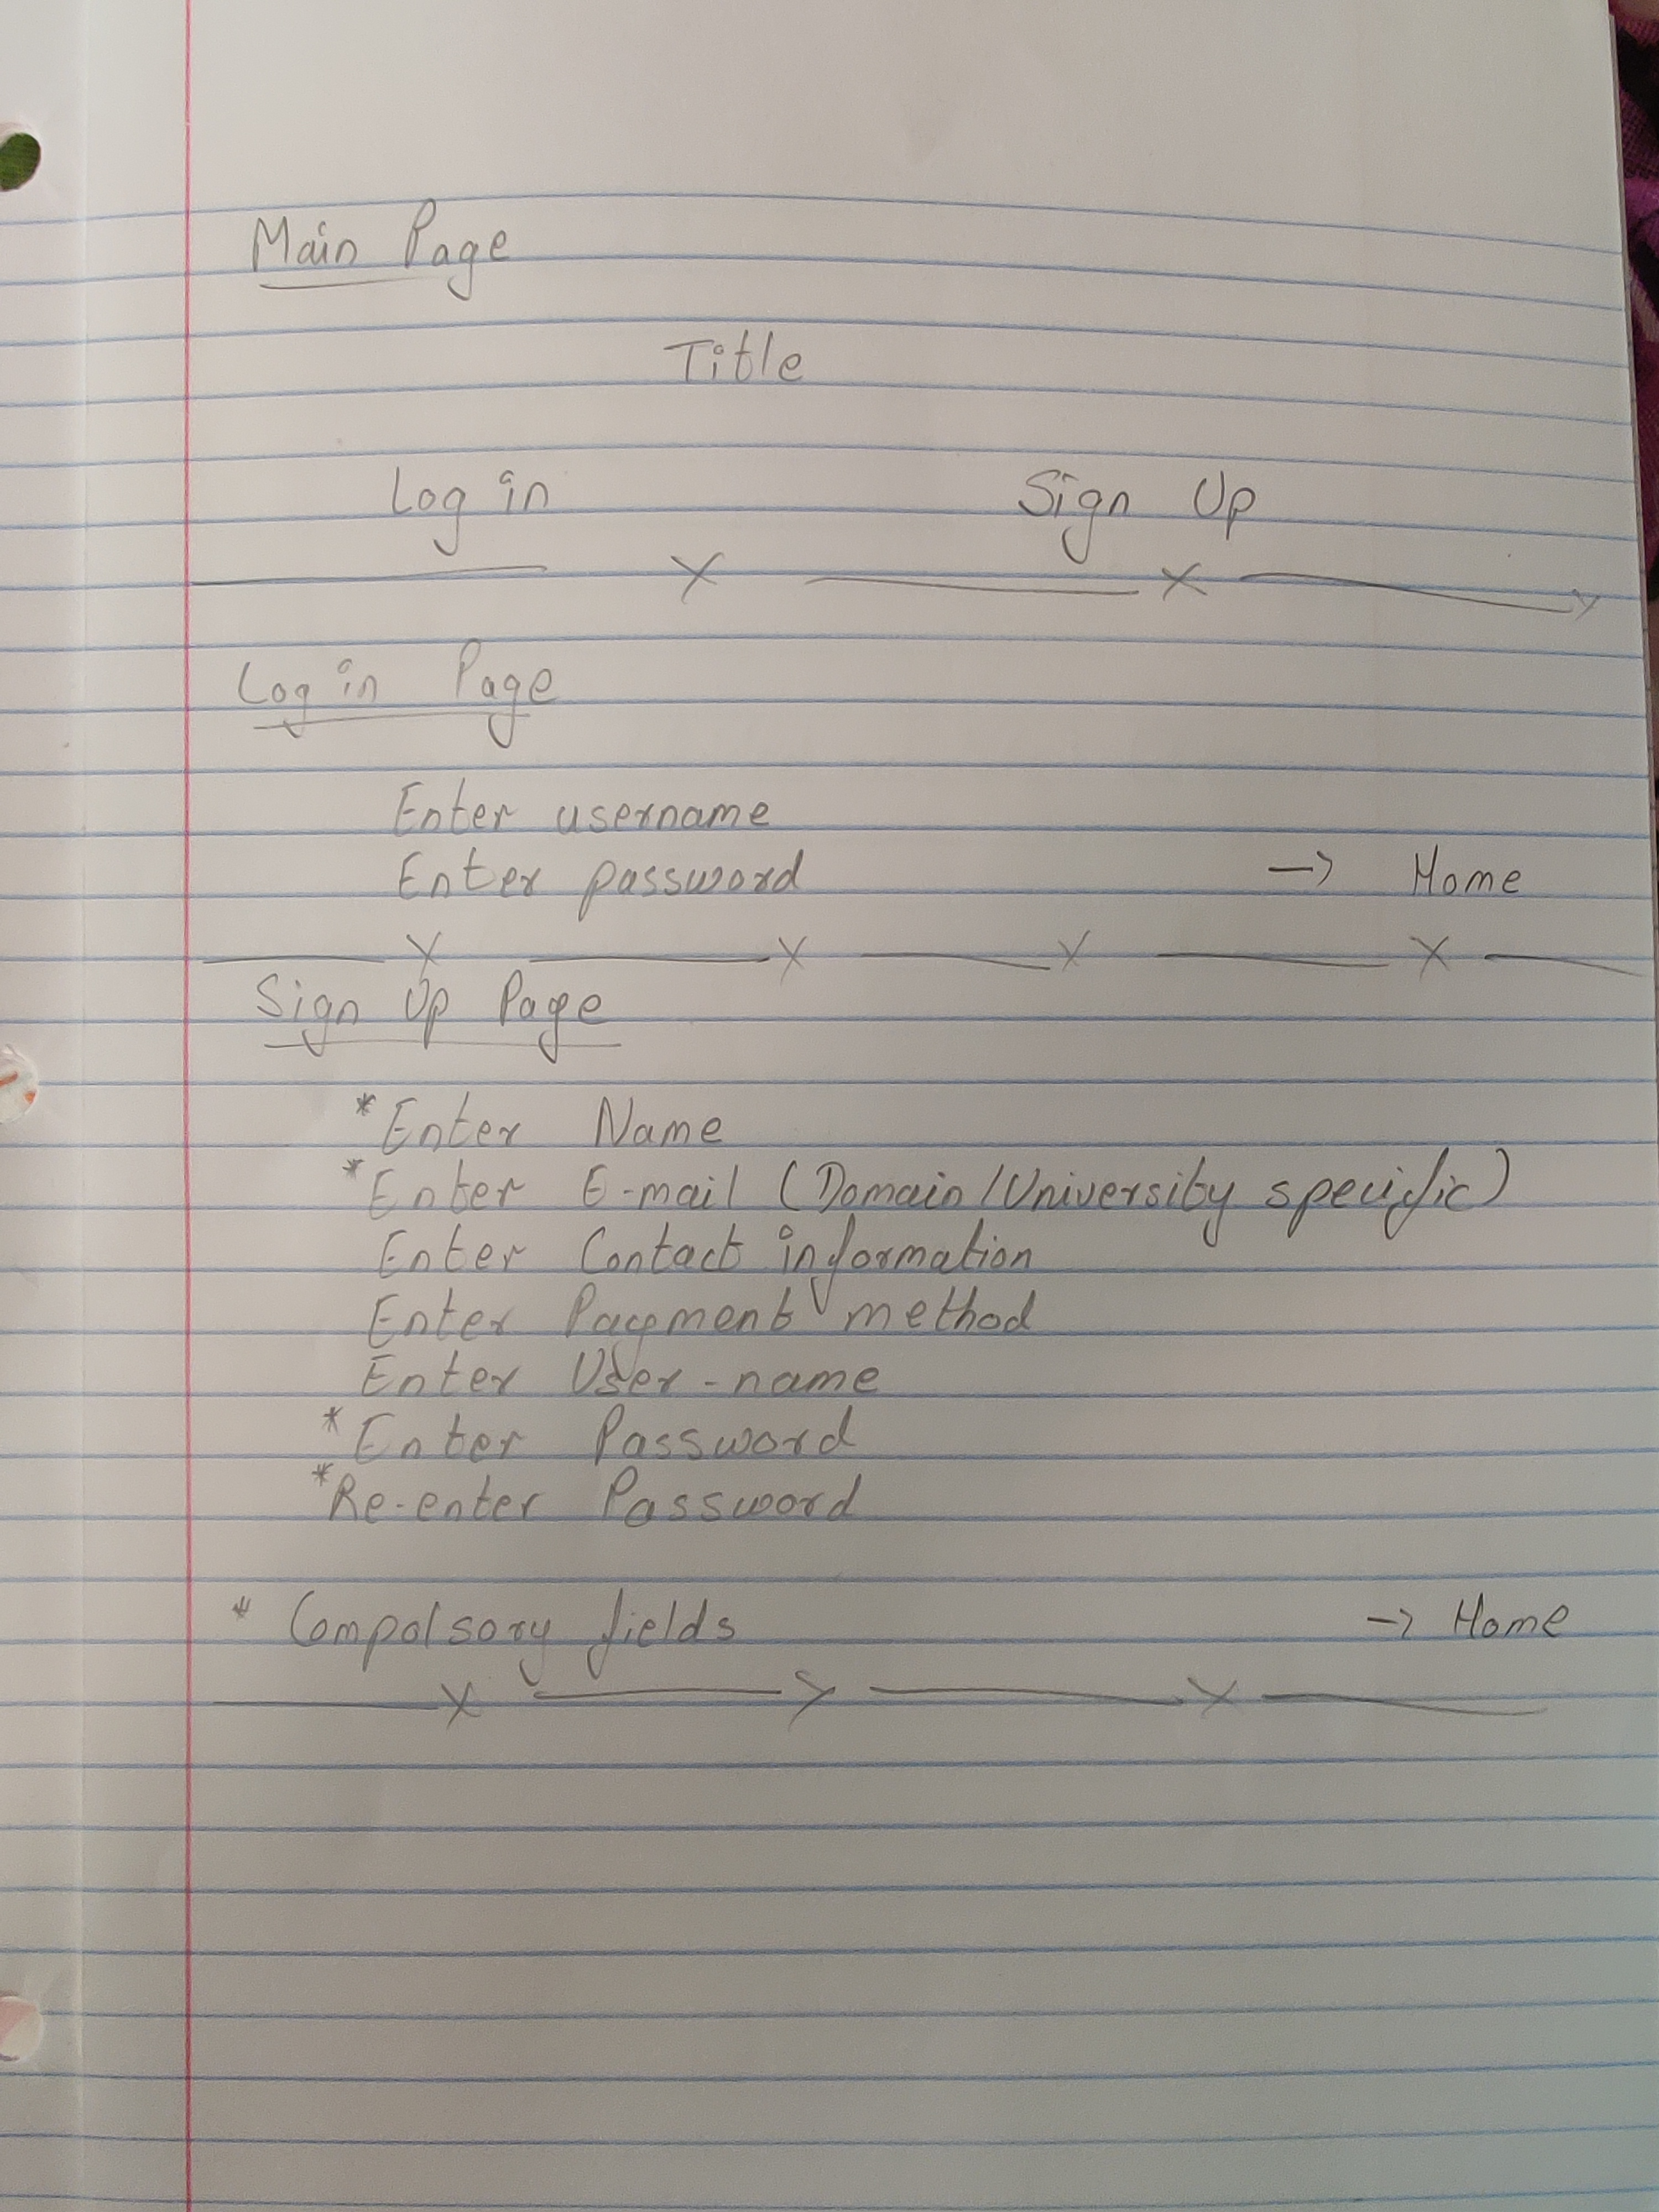 Main Page
Title
Log in Sign Up
Log in Page
Enter username
Enter password -> Home
Sign Up Page
*Enter Name
*Enter E-mail (Domain/University specific)
Enter Contact information
Enter Payment method
Enter User-name
*Enter Password
*Re-enter Password
* Compolsory fields -> Home